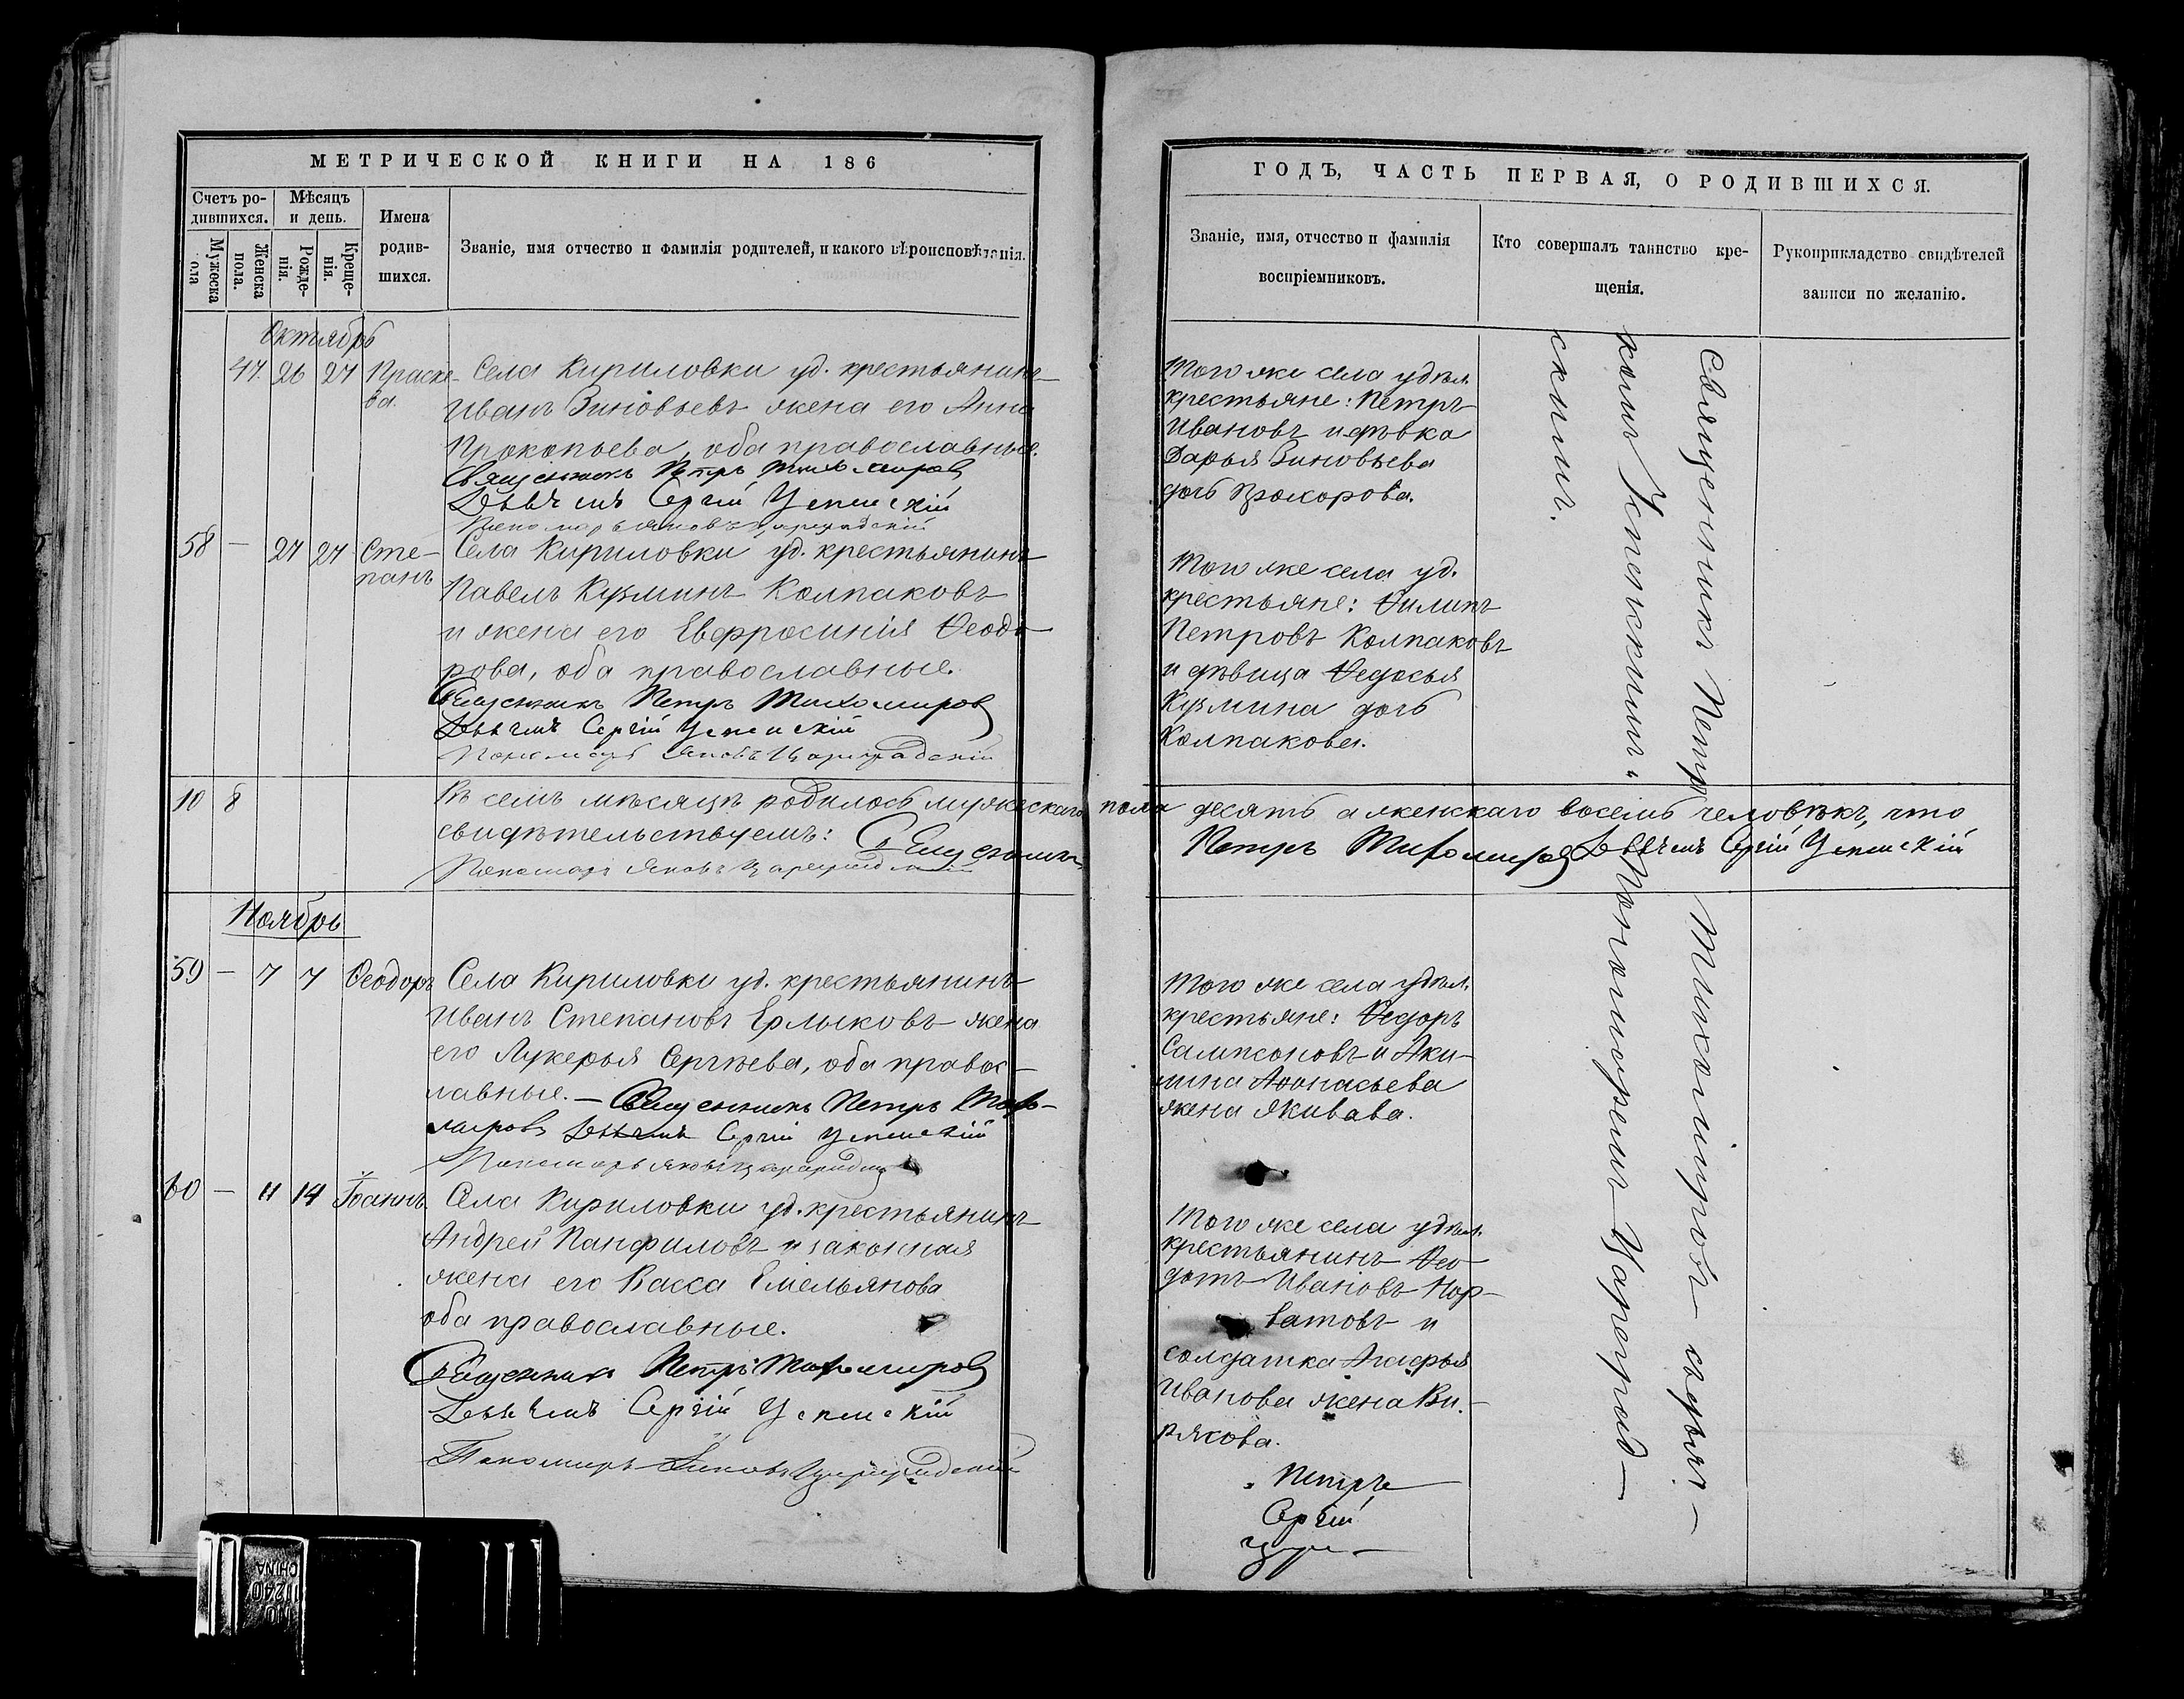 МЕТРИЧЕСКОЙ КНИГИ НА 186
Счетъ ро-
дившихся.
Мѣсяцъ
и день.
Имена
родив-
шихся.
Званіе, имя отчество и фамилія родителей, и какого вѣроисповѣданія.
Мужеска
пола
Женска
пола.
Рожде-
нія.
Креще-
нія.
Октябрь
47. 26 27 Праске-
ва.
Села Кириловки уд. крестьянинъ
Иванъ Зиновьевъ жена его Анна
Прокопьева, оба православные.
Священникъ Петръ Тихомировъ
Дьячекъ Сергій Успенскій
Пономарь Яковъ Цареградскій
58 — 27 27 Сте-
панъ
Села Кириловки уд. крестьянинъ
Павелъ Кузминъ Колпаковъ
и жена его Евфросинія Ѳеодо-
рова, оба православные.
Священникъ Петръ Тихомировъ
Дьячекъ Сергій Успенскій
Пономарь Яковъ Цареградскій
10 8
Въ семъ мѣсяцѣ родилось мужескаго
свидѣтельствуемъ: Священникъ
Пономарь Яковъ Цареградскій
Ноябрь
59 — 7 7 Ѳеодоръ
Села Кириловки уд. крестьянинъ
Иванъ Степановъ Ерлыковъ жена
его Лукерья Сергѣева, оба правос-
лавные. — Священникъ Петръ Тихо-
мировъ Дьячекъ Сергій Успенскій
Пономарь Яковъ Цареградск
60 — 11 14 Іоаннъ
Села Кириловки уд. крестьянинъ
Андрей Панфиловъ и законная
жена его Васса Емельянова
оба православные.
Священникъ Петръ Тихомировъ
Дьячекъ Сергій Успенскій
Пономарь Яковъ Цареградскій
ГОДЪ, ЧАСТЬ ПЕРВАЯ, О РОДИВШИХСЯ.
Званіе, имя, отчество и фамилія
воспріемниковъ.
Кто совершалъ таинство кре-
щенія.
Рукоприкладство свидѣтелей
записи по желанію.
Того же села удѣл.
крестьяне: Петръ
Ивановъ и дѣвка
Дарья Зиновьева
дочь
Того же села уд.
крестьяне: Ѳилипъ
Петровъ Колпаковъ
и дѣвица Ѳедосья
Кузмина дочь
Колпакова.
пола десять а женскаго восемь человѣкъ, что
Петръ Тихомировъ Дьячекъ Сергій Успенскій
Того же села удѣл.
крестьяне: Ѳедоръ
Сампсоновъ и Аки-
лина Аѳонасьева
жена
Того же села удѣл.
крестьянинъ Ѳео-
дотъ Ивановъ Нор-
ватовъ и
солдатка Агафья
Иванова жена Ви-
рякова.
Петръ
Сергій
Священникъ Петръ Тихомировъ съ дьяч-
комъ Успенскимъ и Пономаремъ Цареград-
скимъ.